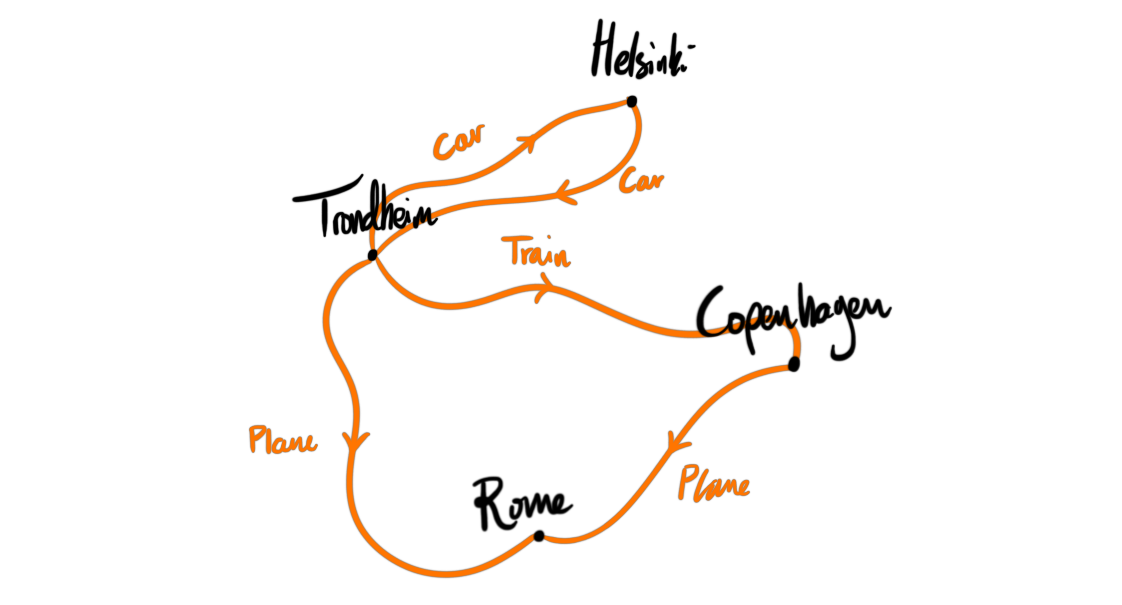 Helsinki
Car
Car
Trondheim
Train
Copenhagen
Plane
Plane
Rome